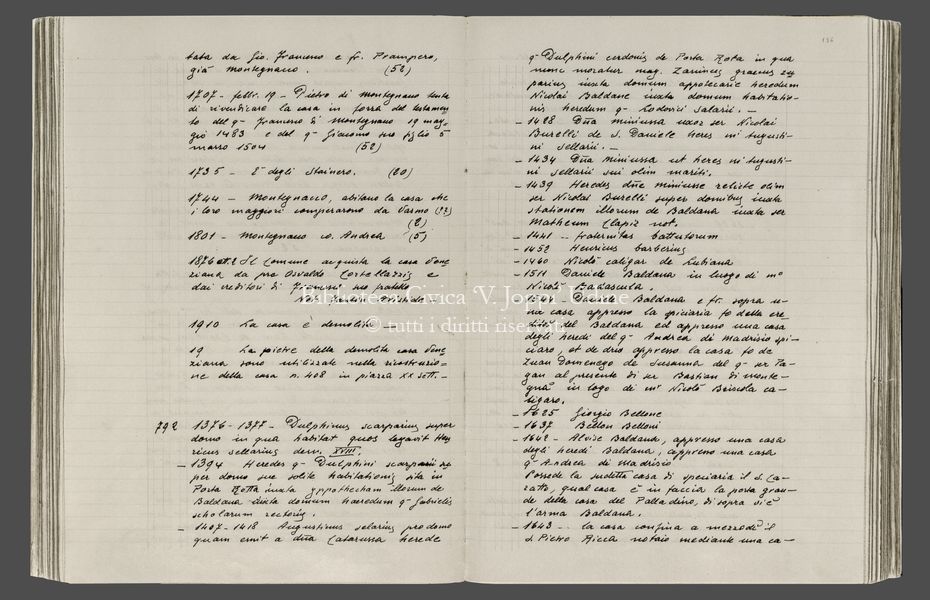 tata da Gio. Francesco e fr. Prampero,
già Montegnacco. (52)
1707 - febbr. 19 - Pietro di Montegnacco tenta
di rivendicare la casa in forza del testamen
to del q.m Francesco di Montegnaco 19 mag-
gio 1483 e del q.m Giacomo suo figlio 5
marzo 1504 (52)
1735 - È degli Stainero. (20)
1744 - Montegnacco, abitano la casa che
i loro maggiori comperarono da Varmo (52)
(2)
1801 - Montegnacco co. Andrea (5)
1876 Il Comune acquista la casa Vene
ziana da pre Osvaldo Cortellazzis e
dai creditori di suo fratello
1910 La casa è demolita
19 Le pietre della demolita casa Vene
ziana sono utilizzate nella ricostruzio=
ne della casa n. 408 in piazza XX Sett. -
792 1376 - 1377 - Dulphinus scarparius super
domo in qua habitat quos legavit Hen
ricus sellarius den. XVIII.
- 1394 Heredes q.m Dulphini scarparii su
per domo sue solite habitationis sita in
Porta Rotta iuxta yppothecham illorum de
Baldana dicta domum haeredum q.m Gabrielis
scholarum rectoris.
- 1407-1418 Augustinus selarius pro domo
quam emit a dña Catarussa herede
q.m Dulphini cerdonis de Porta Rota in qua
nunc moratur mag. Zaninus graecus zu
parius iuxta domum appotecarie heredum
Nicolai Baldane iuxta domum habitatio-
nis heredum q.m Lodovici Salarii. -
- 1428 Dña Miniussa uxor ser Nicolai
Burelli de S. Daniele heres mi Augusti-
ni sellarii. -
- 1434 Dña Miniussa ut heres mi Augusti-
ni sellarii sui olim mariti.
- 1439 Heredes dñe Miniusse relicte olim
ser Nicolai Burelli super domibus iuxta
stationem illorum de Baldana iuxta ser
Matheum Clapiz not.
- 1441 - fraternitas Battutorum
- 1452 Henricus barberius
- 1460 Nicolò caligar de Lubiana
- 1511 Daniele Baldana in luogo di m.o
Nicolò Badascula.
Daniele Baldana e fr. sopra u-
na casa appresso la spiciaria fo della ere_
dità del Baldana ed appresso una casa
degli heredi del q.m Andrea di Madrisio spi-
ciaro, et de drio appresso la casa fo de
Zuan Domenego de Susanna del q.m ser Pa-
gan al presente di ser Bastian di Monte-
gnà in logo di m.o Nicolò Briscola ca-
ligaro.
- 1625 Giorgio Bellone
- 1637 Bellon Belloni
- 1642 - Alvise Baldana, appresso una casa
degli heredi Baldana, appresso una casa
q.m Andrea di Madrisio
Possede la suditta casa di speciaria il S. Ca-
ratto, qual casa è in faccia la porta gran-
de della casa del Palladino, di sopra vi è
l'arma Baldana.
- 1643 -- la casa confina a mezzodì il
S. Pietro Ricca notaio mediante una ca-
136
Biblioteca Civica 'V. Joppi' Udine
© tutti i diritti riservati